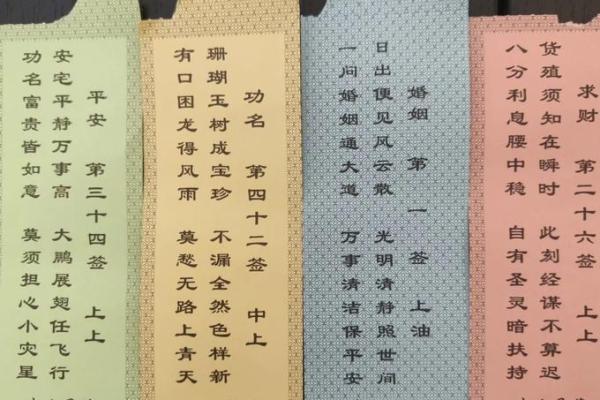 平安 第三十四签 上上
安宅平静万事高 大鹏展翅任飞行
功名富贵皆如意 莫须担心小灾星
功名 第四十二签 中上
珊瑚玉树成宝珍 不漏全然色样新
有口困龙得风雨 莫愁无路上青天
婚姻 第一签 上油
日出便见风云散 光明清静照世间
一问婚姻通大道 万事清洁保平安
求财 第二十六签 上上
货殖须知在瞬时 此刻经谋不算迟
八分利息腰中稳 自有圣灵暗扶持